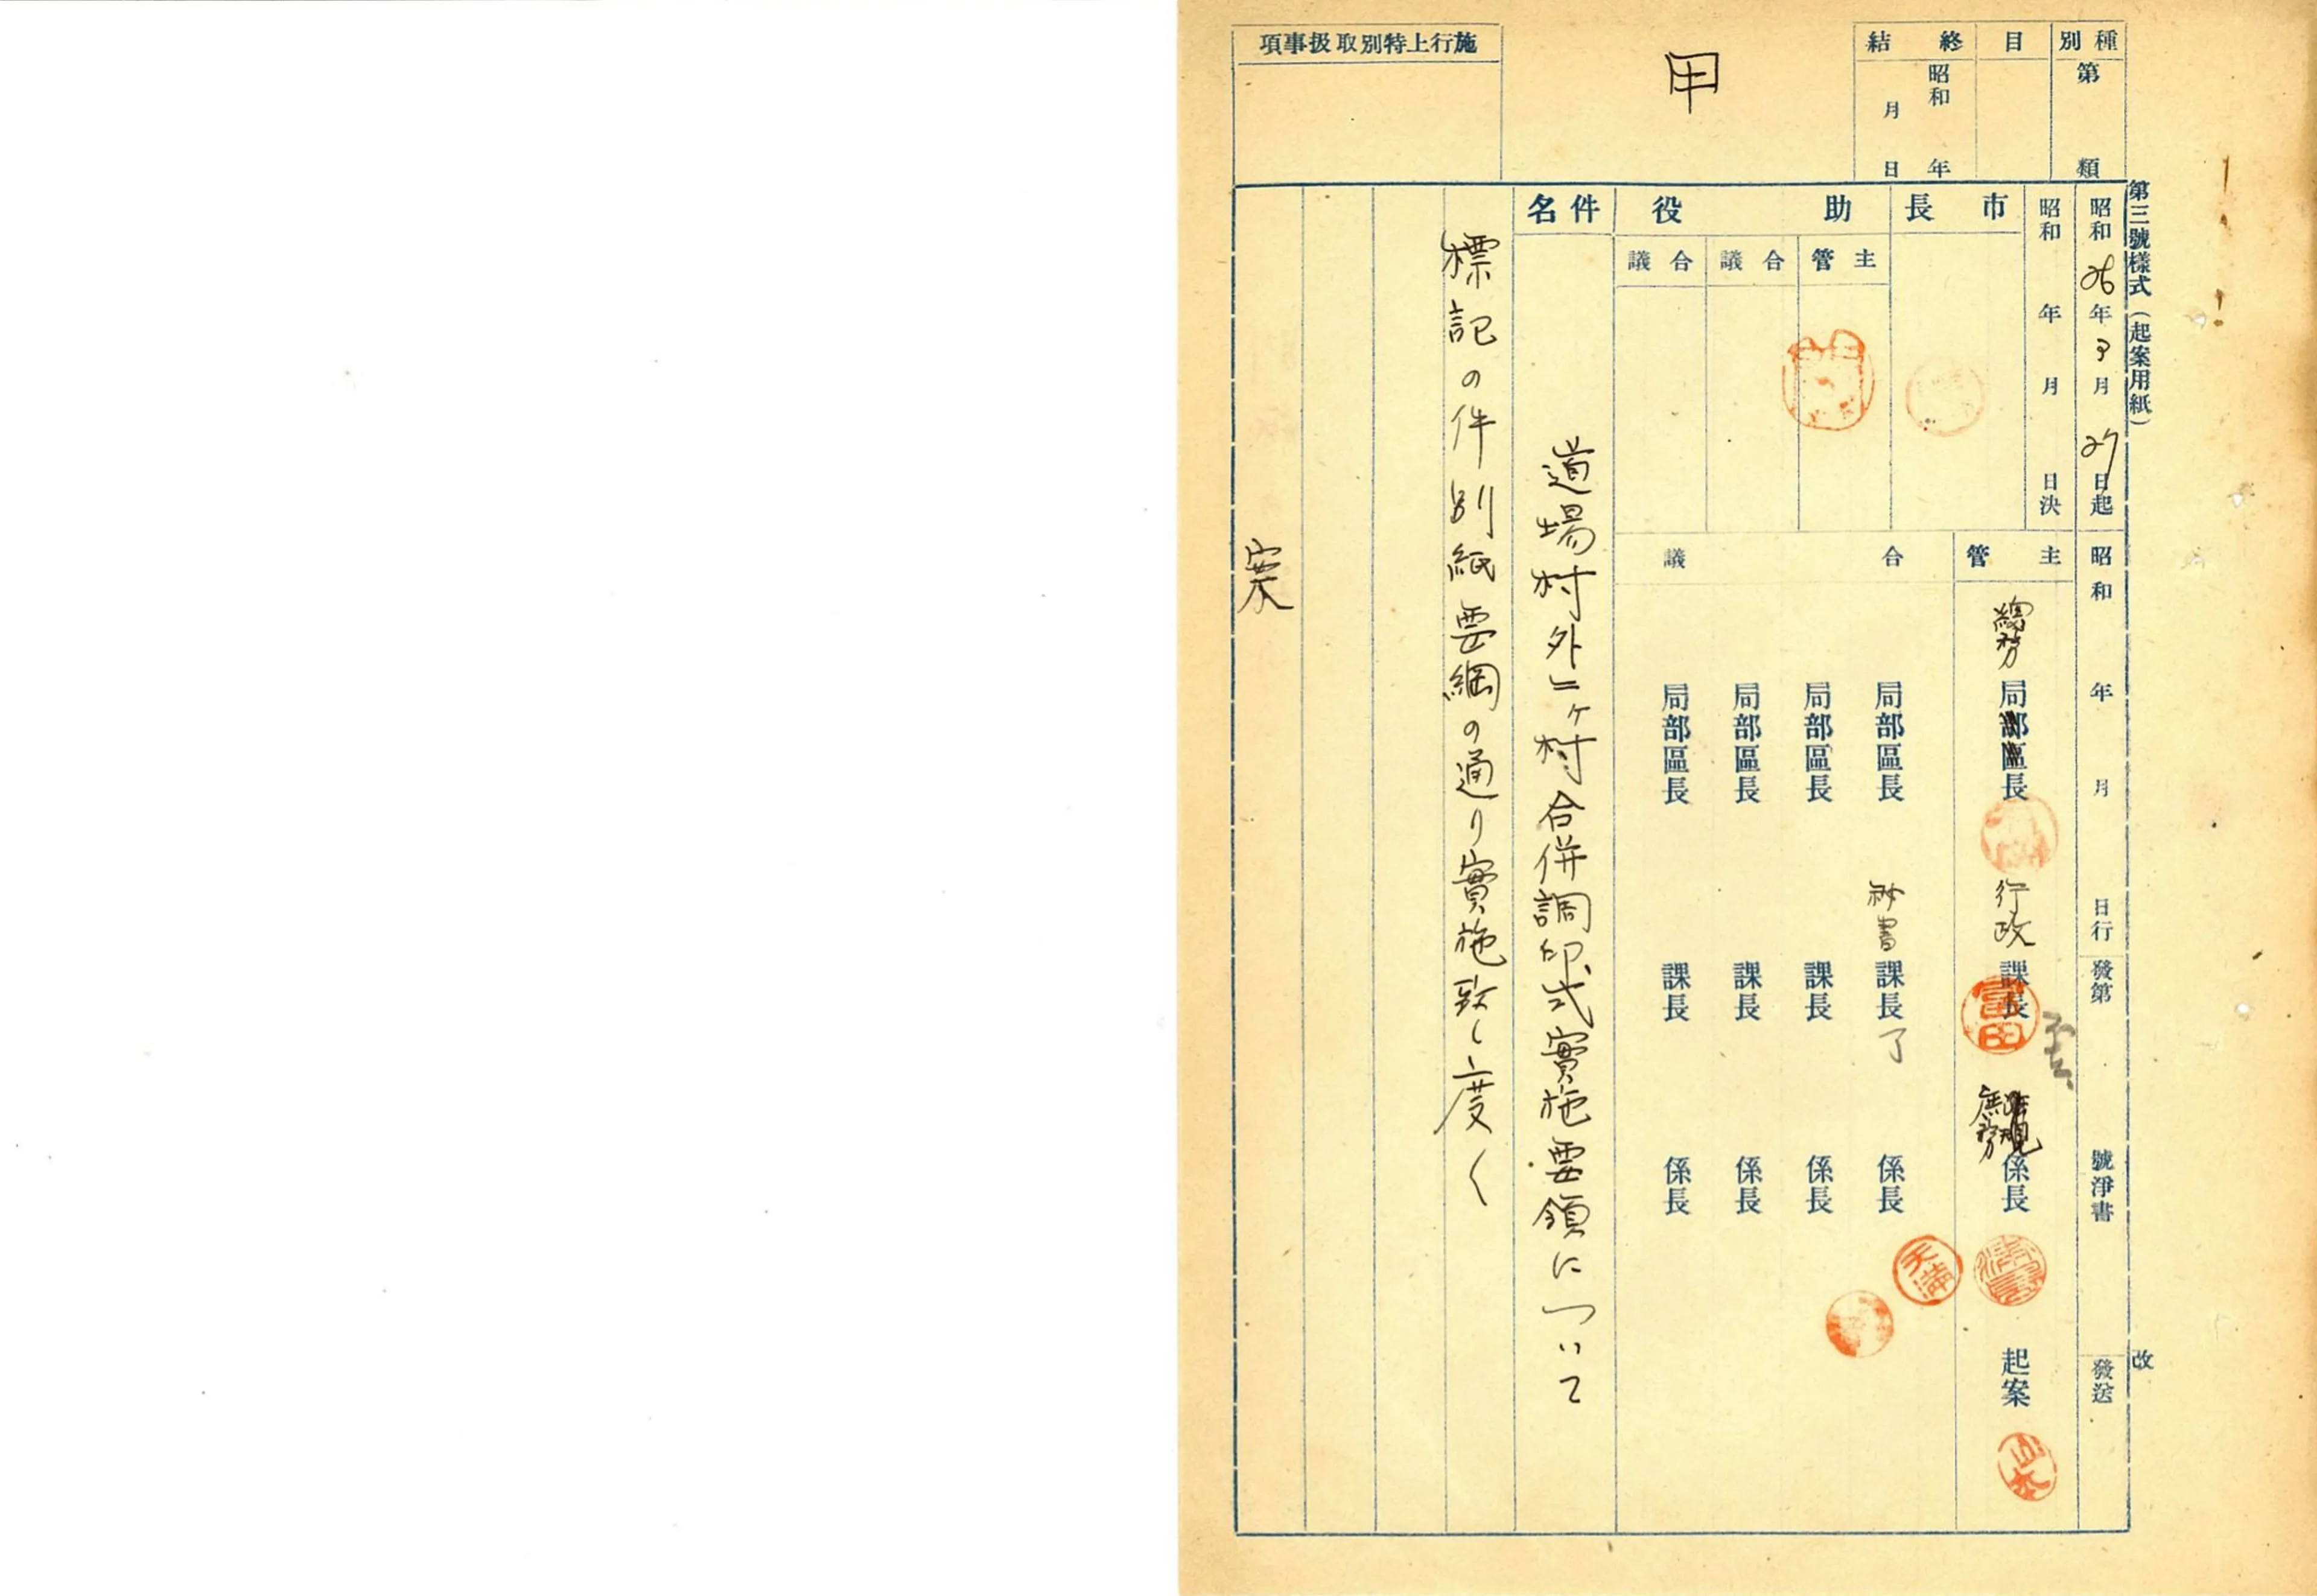 第三號樣式（起案用紙）
改
種別
第 類
目
終結
昭和 年
月 日
甲
施行上特別取扱事項
昭和26年3月27日起
昭和 年 月 日決
市長
助役
主管
合議
合議
昭和 年 月 日行
發第 號淨書
發送
主管
總務局部區長
行政課長
富田
庶務係長
起案
山本
合議
局部區長
秘書課長 了
係長
天満
局部區長
課長
係長
局部區長
課長
係長
局部區長
課長
係長
件名
道場村外二ヶ村合併調印式實施要領について
標記の件別紙要綱の通り實施致し度く
案